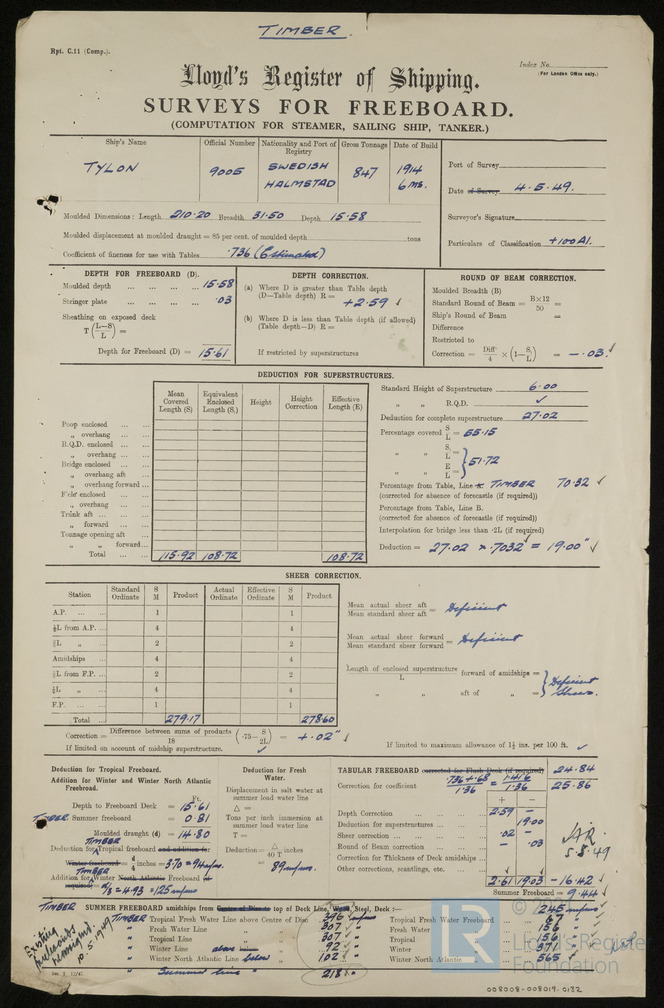 TIMBER.
Rpt. C.11 (Comp.).
Index No.
(For London Office only.)
Lloyd's Register of Shipping.
SURVEYS FOR FREEBOARD.
(COMPUTATION FOR STEAMER, SAILING SHIP, TANKER.)
Ship's Name Official Number Nationality and Port of Registry Gross Tonnage Date of Build
TYLON 9005 SWEDISH HALMSTAD 847 1914 6 ms.
Port of Survey
Date of Survey 4.5.49.
Surveyor's Signature
Particulars of Classification +100A1.
Moulded Dimensions: Length 210.20 Breadth 31.50 Depth 15.58
Moulded displacement at moulded draught = 85 per cent. of moulded depth tons
Coefficient of fineness for use with Tables .736 (Estimated)
DEPTH FOR FREEBOARD (D).
Moulded depth 15.58
Stringer plate .03
Sheathing on exposed deck
T (L–S/L) =
Depth for Freeboard (D) = 15.61
DEPTH CORRECTION.
(a) Where D is greater than Table depth
(D—Table depth) R = +2.59 ✓
(b) Where D is less than Table depth (if allowed)
(Table depth—D) R =
If restricted by superstructures
ROUND OF BEAM CORRECTION.
Moulded Breadth (B)
Standard Round of Beam = B×12/50 =
Ship's Round of Beam =
Difference
Restricted to
Correction = Diff/4 × (1–S₁/L) = –.03 ✓
DEDUCTION FOR SUPERSTRUCTURES.
Mean Covered Length (S) Equivalent Enclosed Length (S₁) Height Height Correction Effective Length (E)
Poop enclosed
„ overhang
R.Q.D. enclosed
„ overhang
Bridge enclosed
„ overhang aft
„ overhang forward
F'cle enclosed
„ overhang
Trunk aft
„ forward
Tonnage opening aft
„ „ forward
Total 115.92 108.72 108.72
Standard Height of Superstructure 6.00
„ „ R.Q.D. ✓
Deduction for complete superstructure 27.02
Percentage covered S/L = 55.15
„ „ S₁/L =
„ „ E/L = } 51.72
Percentage from Table, Line A. TIMBER 70.32 ✓
(corrected for absence of forecastle (if required))
Percentage from Table, Line B.
(corrected for absence of forecastle (if required))
Interpolation for bridge less than ·2L (if required)
Deduction = 27.02 × .7032 = 19.00" ✓
SHEER CORRECTION.
Station Standard Ordinate S M Product Actual Ordinate Effective Ordinate S M Product
A.P. 1 1
⅙L from A.P. 4 4
⅓L „ 2 2
Amidships 4 4
⅓L from F.P. 2 2
⅙L „ 4 4
F.P. 1 1
Total 279.17 278.60
Mean actual sheer aft
Mean standard sheer aft = Deficient
Mean actual sheer forward
Mean standard sheer forward = Deficient
Length of enclosed superstructure / L forward of amidships =
„ „ aft of „ = } Deficient Sheer.
Correction = Difference between sums of products / 18 (·75– S/2L) = +.02" ✓
If limited on account of midship superstructure. ✓
If limited to maximum allowance of 1½ ins. per 100 ft. ✓
Deduction for Tropical Freeboard.
Addition for Winter and Winter North Atlantic Freeboard.
Ft.
Depth to Freeboard Deck = 15.61
TIMBER Summer freeboard = 0.81
Moulded draught (d) = 14.80
TIMBER
Deduction for Tropical freeboard and addition for
Winter freeboard = d/4 inches = 3.70 = 94 m/ms.
TIMBER
Addition for Winter North Atlantic Freeboard (if required) = d/3 = 4.93 = 125 m/ms
Deduction for Fresh Water.
Displacement in salt water at summer load water line
Δ =
Tons per inch immersion at summer load water line
T =
Deduction = Δ/40 T inches
= 89 m/ms.
TABULAR FREEBOARD corrected for Flush Deck (if required) 24.84
Correction for coefficient .736+.68/1.36 = 1.416/1.36 25.86
+ –
Depth Correction 2.59 –
Deduction for superstructures 19.00
Sheer correction .02 –
Round of Beam correction – .03
Correction for Thickness of Deck amidships
Other corrections, scantlings, etc.
2.61 19.03 –16.42
Summer Freeboard = 9.44
5.5.49
TIMBER SUMMER FREEBOARD amidships from Centre of Disc to top of Deck Line, Wood, Steel, Deck :— 1245 m/ms
TIMBER Tropical Fresh Water Line above Centre of Disc 396 m/ms Tropical Fresh Water Freeboard 67
„ Fresh Water Line „ 307 Fresh Water „ 156
„ Tropical Line „ 307 Tropical „ 156
„ Winter Line above „ 92 Winter „ 371
„ Winter North Atlantic Line below „ 102 Winter North Atlantic „ 565
„ Summer line „ 218
Existing freeboards reassigned 10.5.1949
Lloyd's Register Foundation
008008-008019-0132